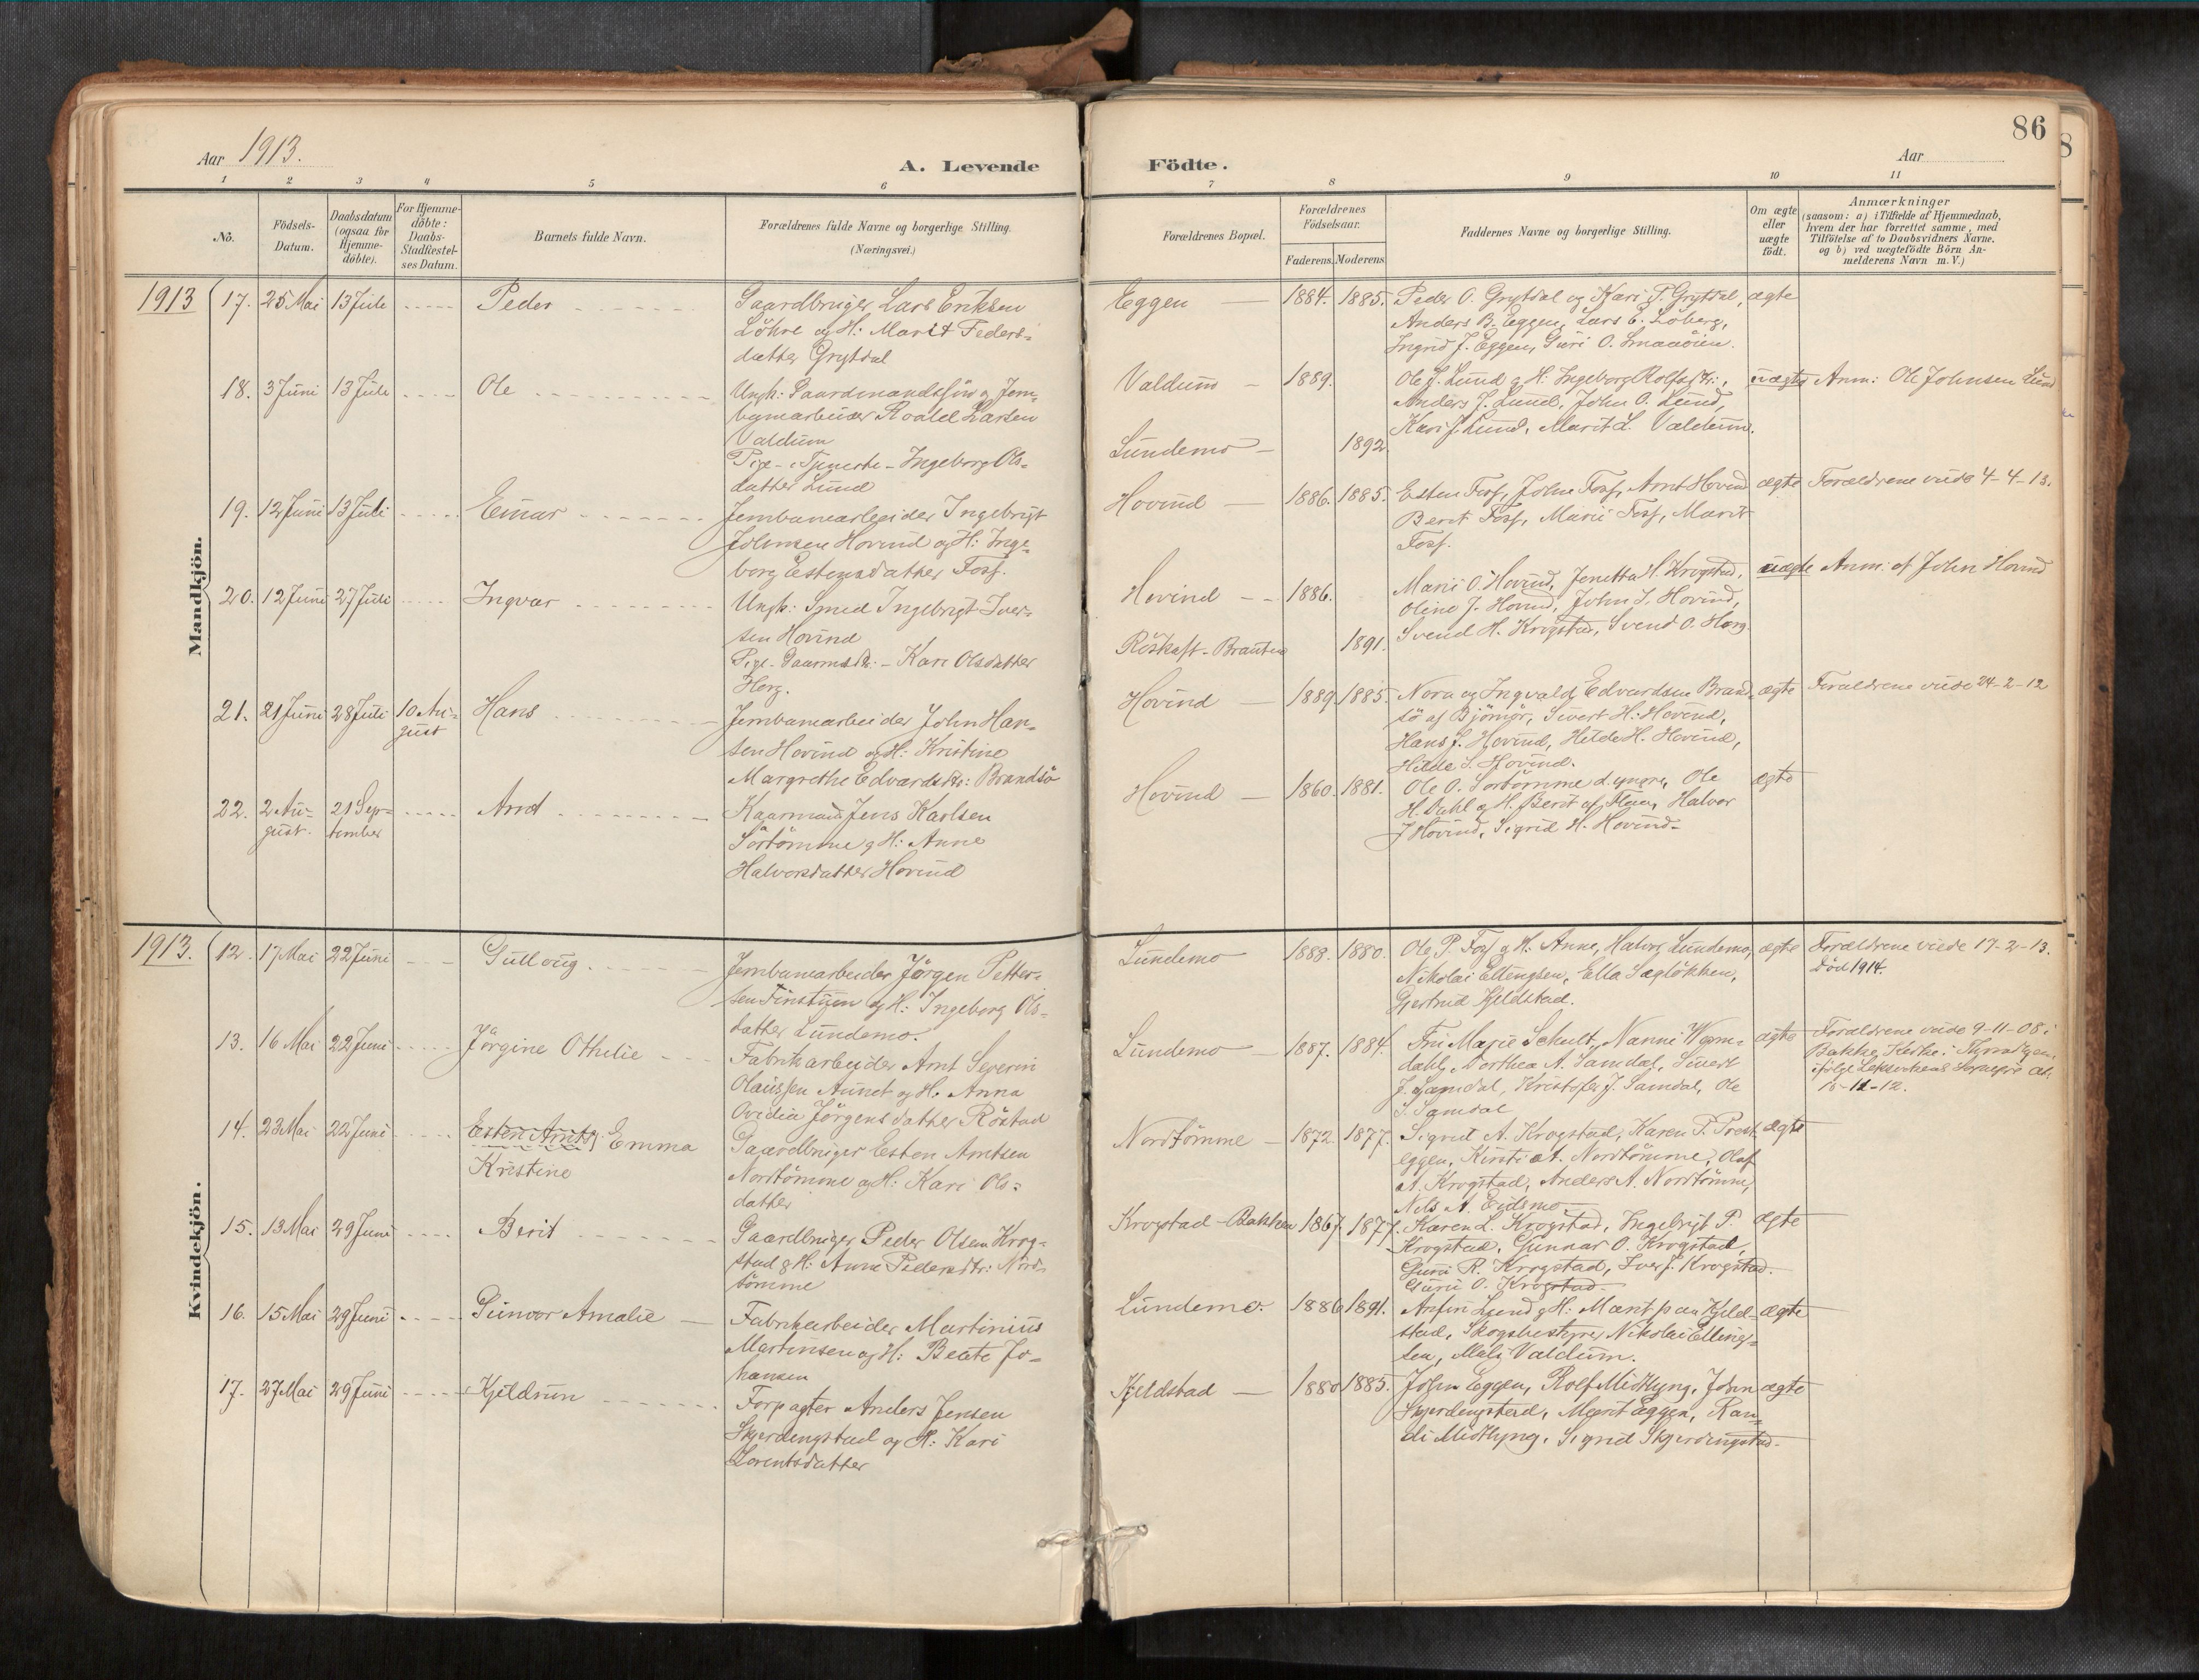 Aar 1913.
A. Levende
1 2 3 4 5 6
No.
Födsels-
Datum.
Daabsdatum
(ogsaa for
Hjemme-
döbte).
For Hjemme-
döbte:
Daabs-
Stadfæstel-
ses Datum.
Barnets fulde Navn.
Forældrenes fulde Navne og borgerlige Stilling.
(Næringsvei.)
Mandkjön.
1913 17. 25 Mai 13 Juli Peder
Gaardbruger Lars Eriksen
Löhre og H: Marit Peders-
datter Grytdal
18. 3 Juni 13 Juli Ole
Ungk: Gaardmandssön og Jern-
banearbeider Roald Larsen
Valdum
Pige - i Tjeneste - Ingeborg Ols-
datter Lund
19. 12 Juni 13 Juli Einar
Jernbanearbeider Ingebrigt
Johnsen Hovind og H: Inge-
borg Estensdatter Foss.
20. 12 Juni 27 Juli Ingvar
Ungk: Smed Ingebrigt Iver-
sen Hovind
Pige - Gaarmdtr: - Kari Olsdatter
Horg.
21. 21 Juni 28 Juli 10 Au-
gust
Hans
Jernbanearbeider John Han-
sen Hovind og H: Kristine
Margrethe Edvardsdtr: Brandsö
22. 2 Au-
gust.
21 Sep-
tember
Arnt
Kaarmand Jens Karlsen
Sörtömme og H: Anne
Halvorsdatter Hovind
Kvindekjön.
1913. 12. 17 Mai 22 Juni Gullaug
Jernbanearbeider Jörgen Petter-
sen Finstuen og H: Ingeborg Ols-
datter Lundemo.
13. 16 Mai 22 Juni Jörgine Othilie
Fabrikarbeider Arnt Severin
Olaussen Aunet og H: Anna
Ovidia Jörgensdatter Röstad
14. 23 Mai 22 Juni Esten Arnts Emma
Kristine
Gaardbruger Esten Arntsen
Nordtömme og H: Kari Ols-
datter
15. 13 Mai 29 Juni Berit
Gaardbruger Peder Olsen Krog-
stad og H: Anne Pedersdtr: Nord-
tömme
16. 15 Mai 29 Juni Gunvor Amalie
Fabrikarbeider Martinius
Martinsen og H: Beate Jo-
hansen
17. 27 Mai 29 Juni Kjeldrun
Forpagter Anders Jensen
Skjerdingstad og H: Kari
Lorentsdatter
86
Födte.
Aar
7 8 9 10 11
Forældrenes Bopæl.
Forældrenes
Födselsaar.
Faderens. Moderens
Faddernes Navne og borgerlige Stilling.
Om ægte
eller
uægte
födt.
Anmærkninger
(saasom: a) i Tilfælde af Hjemmedaab,
hvem der har forrettet samme, med
Tilföielse af to Daabsvidners Navne.
og b) ved uægtefödte Börn An-
melderens Navn m. V.)
Eggen 1884. 1885. Peder O. Grytdal og Kari P. Grytdal, ægte
Anders B. Eggen, Lars E. Loberg,
Ingrid J. Eggen, Guri O. Smaaöien.
Valdum 1889. Ole J. Lund og H: Ingeborg Rolfsdtr:, uægte Anm: Ole Johnsen Lund
Anders J. Lund, John O. Lund,
Kari J. Lund, Marit L. Valdum.
Lundemo 1892
Hovind 1886. 1885. Esten Foss, John Foss, Arnt Hovind ægte Forældrene viede 4-4-13.
Berit Foss, Marie Foss, Marit
Foss.
Hovind 1886. Marie O. Hovind, Jenetta H. Krogstad, uægte Anm. af John Hovind
Oline J. Hovind, John I. Hovind,
Svend H. Krogstad, Svend O. Horg.
Röskaft - Brauten 1891.
Hovind 1889. 1885. Nora og Ingvald Edvardsen Brand- ægte Forældrene viede 24-2-12
sö af Bjömör, Sivert H: Hovind,
Hans J. Hovind, Hilde H. Hovind,
Hilde S. Hovind.
Hovind 1860. 1881. Ole O. Sörtömme d. yngre, Ole ægte
H. Dahl og H. Berit af Flaa, Halvor
J Hovind, Sigrid H. Hovind.
Lundemo 1888. 1880. Ole P. Foss og H: Anne, Halvor Lundemo, ægte Forældrene viede 17-2-13.
Nikolai Ellingsen, Ella Sagløkken, Död 1914.
Gjertrud Kjeldstad.
Lundemo 1887. 1884. Fru Marie Schult, Nanni Wem- ægte Forældrene viede 9-11-08 i
dahl, Dorthea A. Samdal, Sivert Bakke Kirke i
J. Samdal, Kristofer J. Samdal, Ole ifølge
S. Samdal 15-11-12.
Nordtömme 1872. 1877. Sigrid A. Krogstad, Karen P. Prest- ægte
eggen, Kirsti A. Nordtömme, Olaf
A. Krogstad, Anders A. Nordtömme,
Nils A. Eidsmo
Krogstad - Bakken 1867. 1877. Karen L. Krogstad, Ingebrigt P. ægte
Krogstad, Gunnar O. Krogstad,
Guru R. Krogstad, Iver J. Krogstad.
Guru O. Krogstad.
Lundemo 1886 1891. Arfin Lund og H: Marit paa Kjeld- ægte
stad, Skogbestyrer Nikolai Elling-
sen, Mali Valdum.
Kjeldstad 1880 1885. John Eggen, Rolf Midtlyng, John ægte
Skjerdingstad, Marit Eggen, Ran-
di Midtlyng, Sigrid Skjerdingstad.